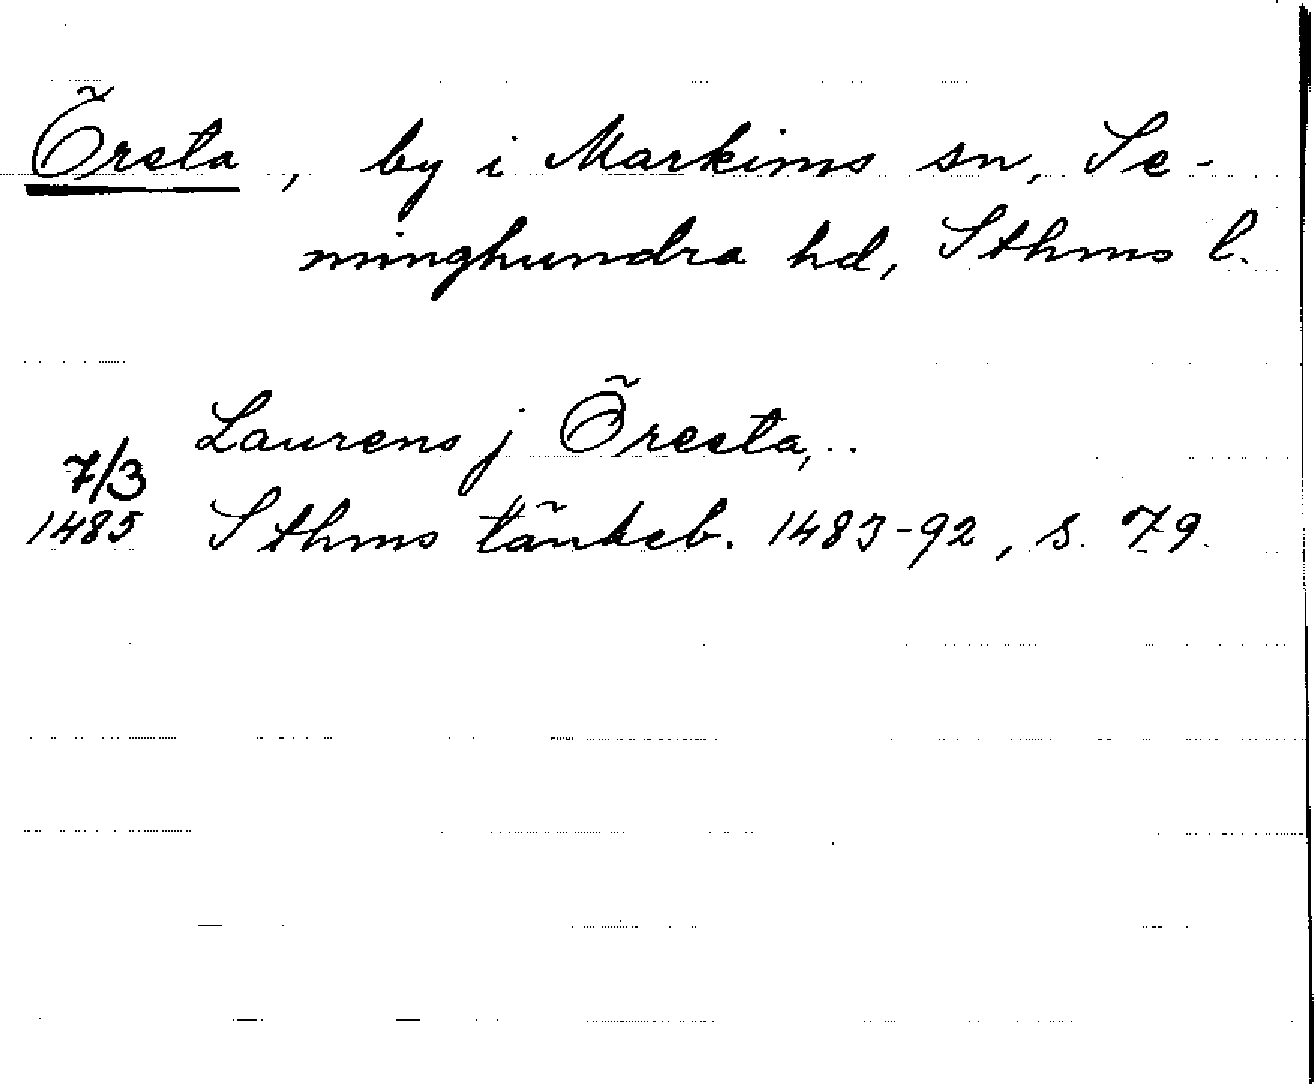 Örsta, by i Markims sn, Se-
minghundra hd, Sthms l.
Laurens j Öresta,..
7/3
1485 Sthms tänkeb. 1483-92, s. 79.